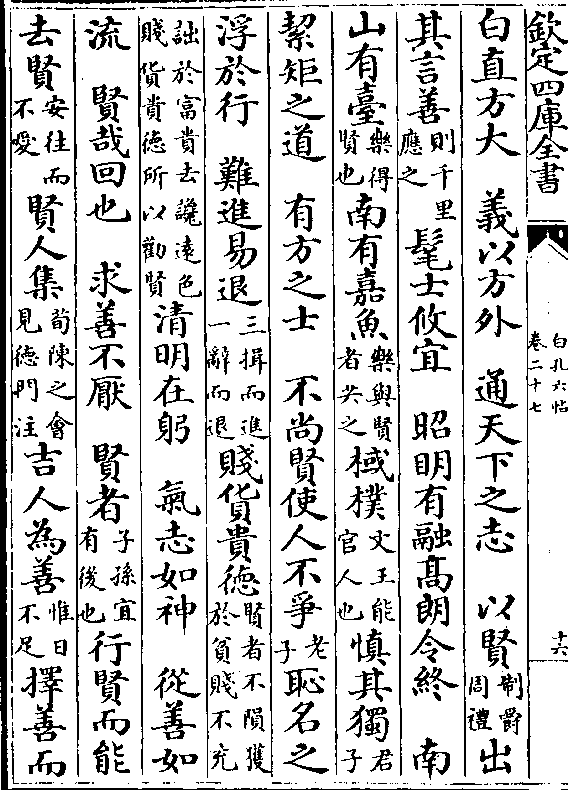 欽定四庫全書
白孔六帖
卷二十七
十六
白直方大　義以方外　通天下之志　以賢制爵周禮出
其言善則千里應之　髦士攸宜　昭明有融高朗令終　南
山有臺樂得賢也南有嘉魚樂與賢者共之棫樸文王能官人也慎其獨君子
絜矩之道　有方之士　不尚賢使人不爭老子恥名之
浮於行　難進易退三揖而進一辭而退賤貨貴德賢者不隕獲於貧賤不充
詘於富貴去讒遠色賤貨貴德所以勸賢清明在躬　氣志如神　從善如
流　賢哉回也　求善不厭　賢者子孫宜有後也行賢而能
去賢安往而不愛賢人集荀陳之會見德門注吉人為善惟日不足擇善而